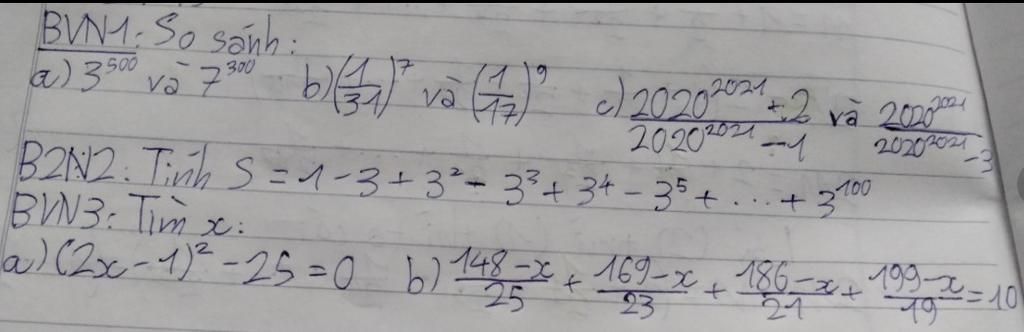 BVN1: So sánh:
a) 3^500 và 7^300 b) (1/31)^7 và (1/17)^9 c) (2020^2021 + 2)/(2020^2021 - 1) và 2020^2021/(2020^2021 - 3)
B2N2: Tính S = 1 - 3 + 3^2 - 3^3 + 3^4 - 3^5 + ... + 3^100
BVN3: Tìm x:
a) (2x - 1)^2 - 25 = 0 b) (148 - x)/25 + (169 - x)/23 + (186 - x)/21 + (199 - x)/19 = 10